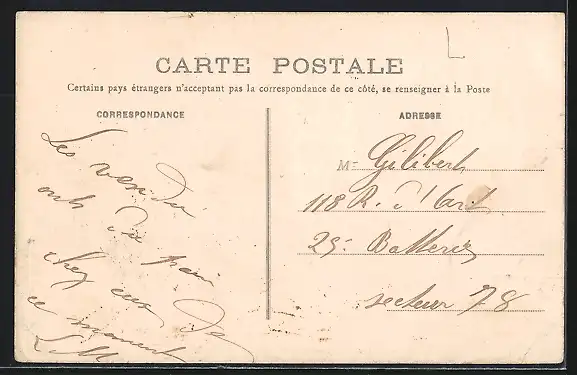 CARTE POSTALE
Certains pays étrangers n'acceptant pas la correspondance de ce côté, se renseigner à la Poste
CORRESPONDANCE
ADRESSE
Les
ont
chez eux
ce moment
M Gilibert
118 R. d'Art
25 Batterie
secteur 78